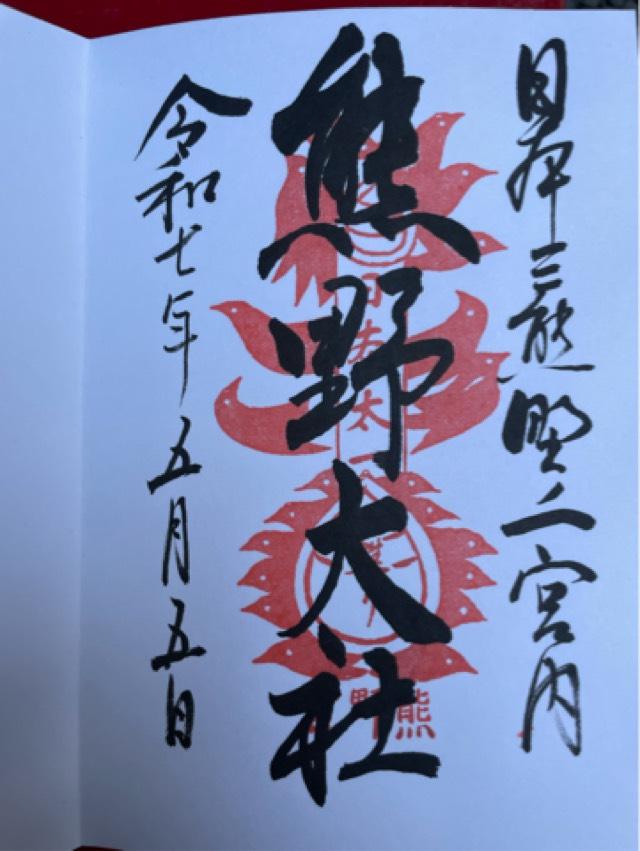 日本三熊野之宮内
熊野大社
令和七年五月五日
熊野